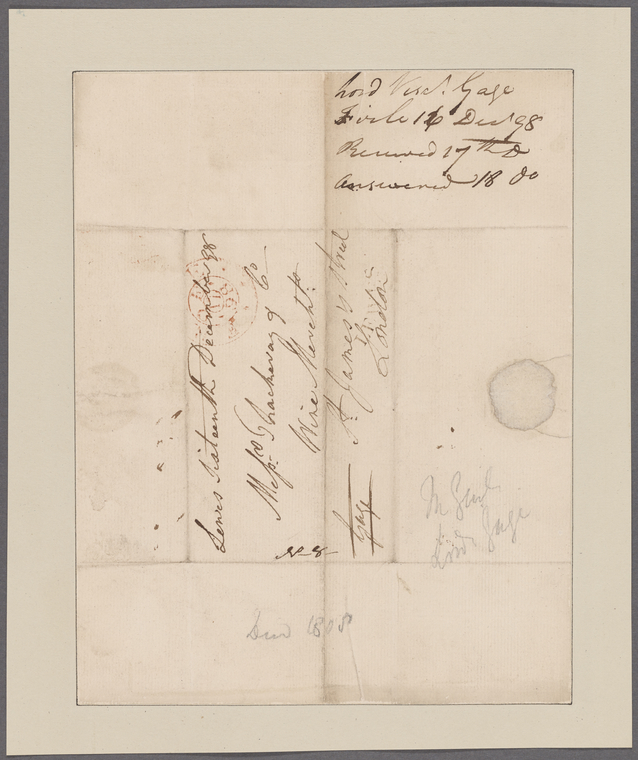 Lord Visct. Gage
Firle 16 Decr 98
Received 17th Do
answered 18 Do
Lewes Sixteenth December 98
Messrs Thackeray & Co
Wine Merchts
St James's Street
London
Gage
to
Lord Gage
Died 1808